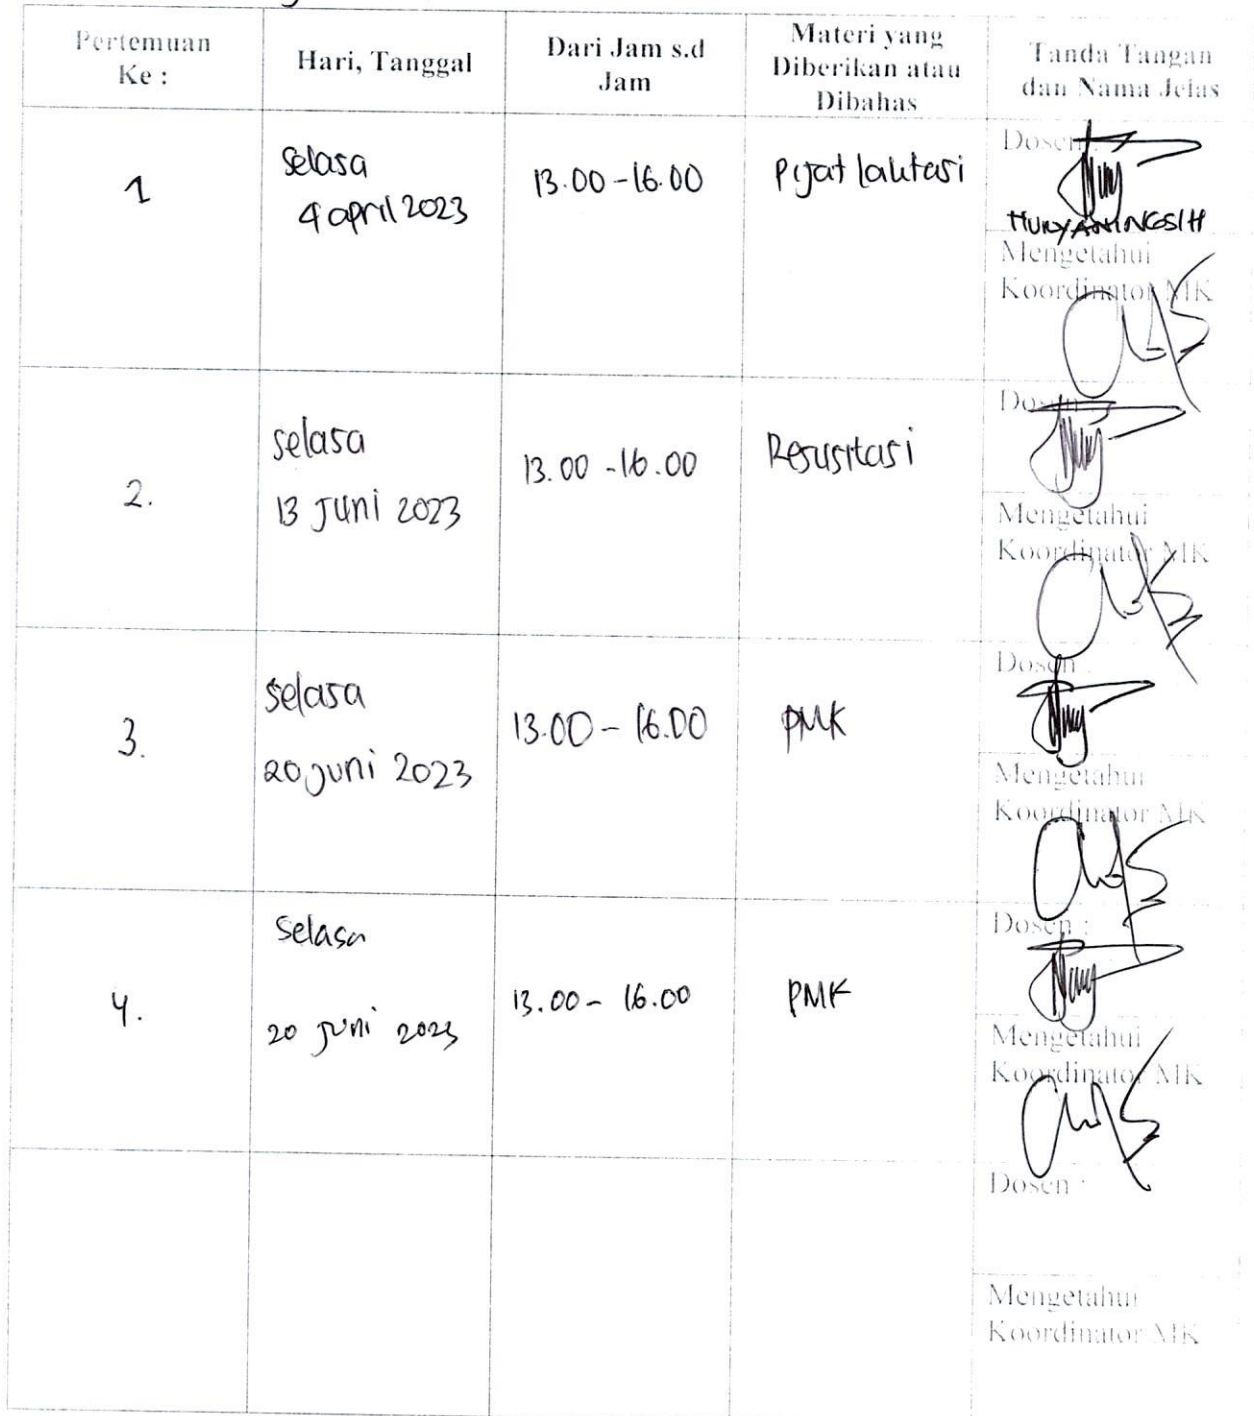 Pertemuan
Ke :
Hari, Tanggal
Dari Jam s.d
Jam
Materi yang
Diberikan atau
Dibahas
Tanda Tangan
dan Nama Jelas
1
Selasa
4 april 2023
13.00 - 16.00
Pijat laktasi
Dosen :
Mengetahui
Koordinator MK
2.
Selasa
13 Juni 2023
13.00 - 16.00
Resusitasi
Dosen :
Mengetahui
Koordinator MK
3.
Selasa
20 Juni 2023
13.00 - 16.00
PMK
Dosen :
Mengetahui
Koordinator MK
4.
Selasa
20 Juni 2023
13.00 - 16.00
PMK
Dosen :
Mengetahui
Koordinator MK
Dosen :
Mengetahui
Koordinator MK